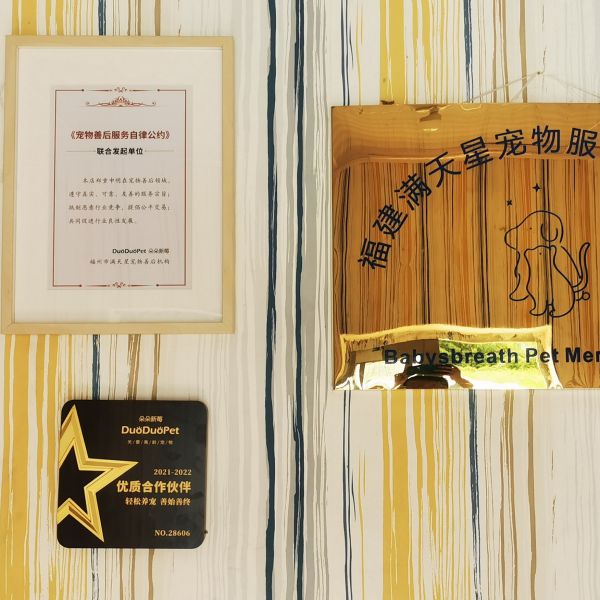 《宠物善后服务自律公约》
·联合发起单位·
本店郑重申明在宠物善后领域，
遵守真实、可靠、友善的服务宗旨；
抵制恶意行业竞争，提倡公平交易；
共同促进行业良性发展。
DuöDuöPet 朵朵新莓
福州市满天星宠物善后机构
福建满天星宠物服
Babysbreath Pet Mem
朵朵新莓
DuöDuöPet
2021-2022
优质合作伙伴
轻松养宠 善始善终
NO.28606